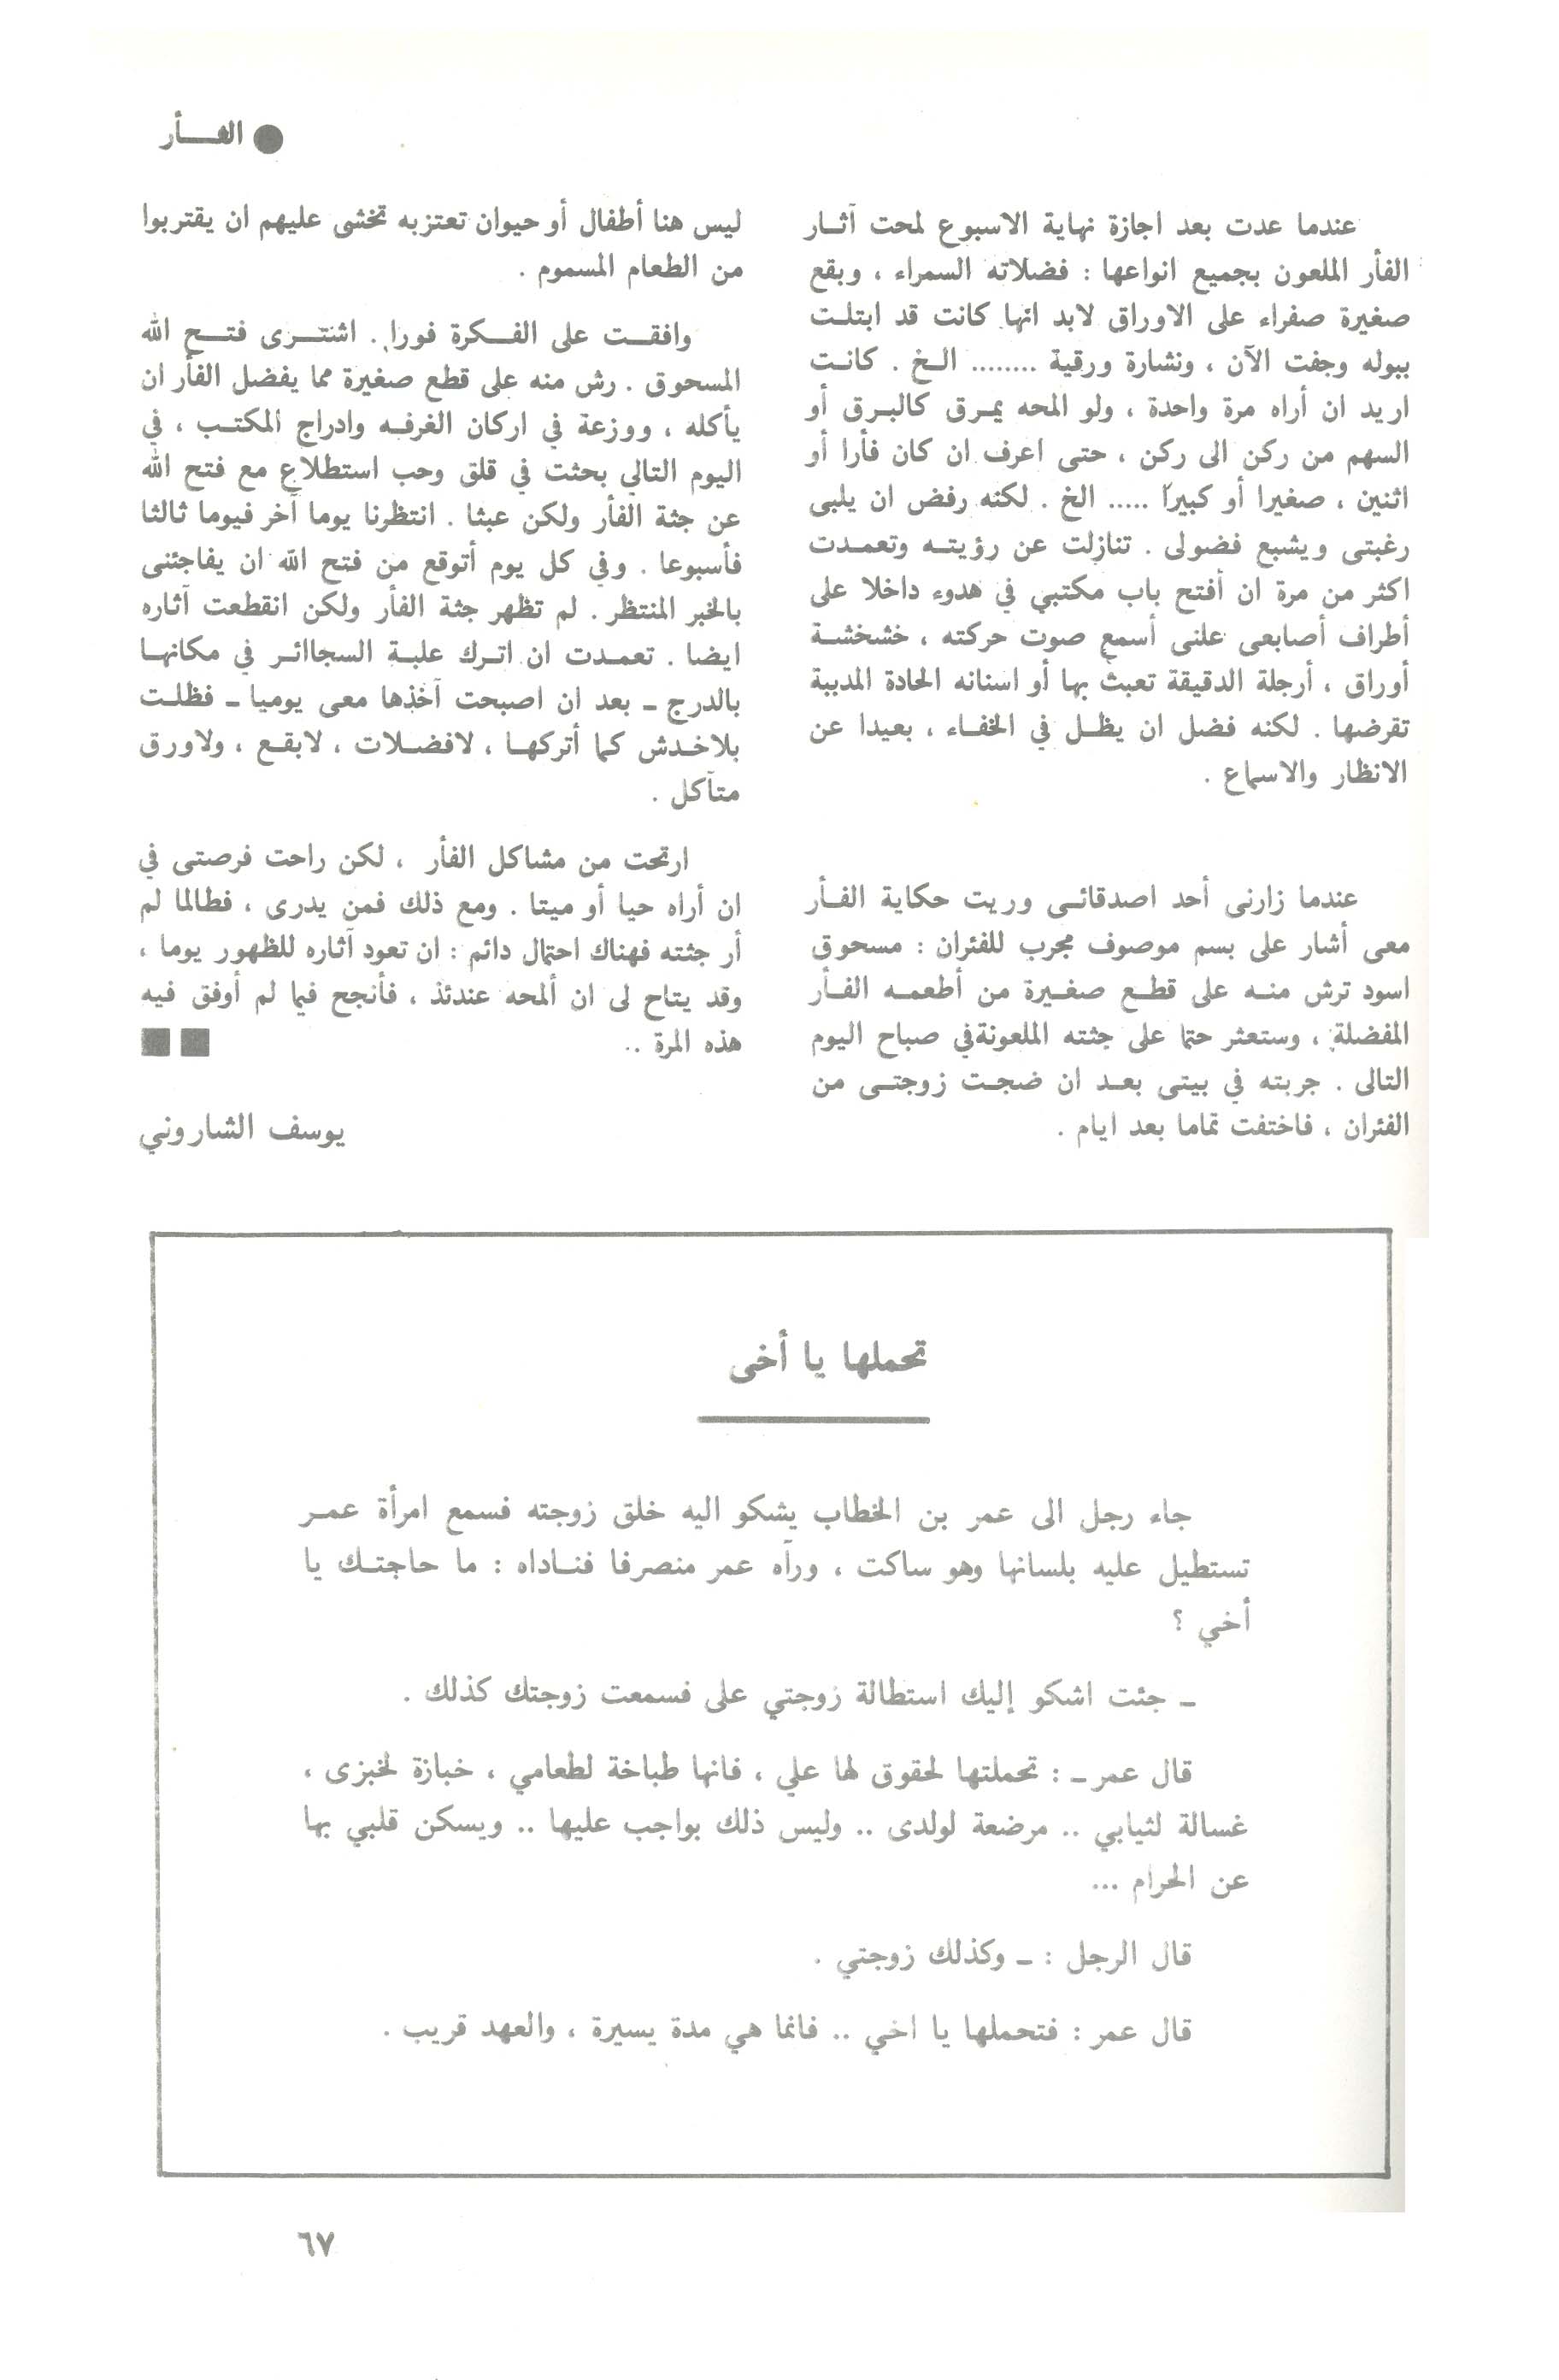 ● الفـــأر
عندما عدت بعد اجازة نهاية الاسبوع لمحت آثــار
الفأر الملعون بجميع انواعها : فضلاته السمراء ، وبقع
صغيرة صفراء على الاوراق لابد انها كانت قد ابتلـت
ببوله وجفت الآن ، ونشارة ورقية ........ الـخ . كانـت
اريد ان أراه مرة واحدة ، ولو المحه يمـرق كالبـرق أو
السهم من ركن الى ركن ، حتى اعرف ان كان فأرا أو
اثنين ، صغيرا أو كبيراً ..... الخ . لكنه رفض ان يلبى
رغبتى ويشبع فضولى . تنازلت عن رؤيتــه وتعمـدت
اكثر من مرة ان أفتح باب مكتبي في هدوء داخلا على
أطراف أصابعى علنى أسمع صوت حركته ، خشخشـة
أوراق ، أرجلة الدقيقة تعبث بها أو اسنانه الحادة المدببة
تقرضها . لكنه فضل ان يظـل في الخفـاء ، بعيدا عن
الانظار والاسماع .
عندما زارنى أحد اصدقائـى وريت حكاية الفـأر
معى أشار على بسم موصوف مجرب للفئران : مسحوق
اسود ترش منـه على قطـع صغيرة من أطعمـه الفـأر
المفضلة ، وستعثر حتما على جثته الملعونةفي صباح اليوم
التالى . جربته في بيتى بعـد ان ضجـت زوجتـى من
الفئران ، فاختفت تماما بعد ايام .
ليس هنا أطفال أو حيوان تعتزبه تخشى عليهم ان يقتربوا
من الطعام المسموم .
وافقــت على الفــكرة فورا . اشتــرى فتــح الله
المسحوق . رش منه على قطع صغيرة مما يفضل الفأر ان
يأكله ، ووزعة في اركان الغرفـه وادراج المكتـب ، في
اليوم التالي بحثت في قلق وحب استطلاع مع فتح الله
عن جثة الفأر ولكن عبثا . انتظرنا يوما آخر فيوما ثالثا
فأسبوعا . وفي كل يوم أتوقع من فتح الله ان يفاجئنى
بالخبر المنتظر . لم تظهر جثة الفأر ولكن انقطعت آثاره
ايضا . تعمـدت ان اتـرك علبـة السجاائـر في مكانهـا
بالدرج ـ بعد ان اصبحت آخذها معى يوميا ـ فظلـت
بلاخـدش كما أتركهـا ، لافضـلات ، لابقـع ، ولاورق
متآكل .
ارتحت من مشاكل الفأر ، لكن راحت فرصتى في
ان أراه حيا أو ميتا . ومع ذلك فمن يدرى ، فطالما لم
أر جثته فهناك احتمال دائم : ان تعود آثاره للظهور يوما ،
وقد يتاح لى ان ألمحه عندئذ ، فأنجح فيما لم أوفق فيه
هذه المرة .. ■■
يوسف الشاروني
تحملها يا أخى
جاء رجل الى عمر بن الخطاب يشكو اليه خلق زوجته فسمع امرأة عمـر
تستطيل عليه بلسانها وهو ساكت ، ورآه عمر منصرفا فنـاداه : ما حاجتـك يا
أخي ؟
ـ جئت اشكو إليك استطالة زوجتي على فسمعت زوجتك كذلك .
قال عمر ـ : تحملتها لحقوق لها علي ، فانها طباخة لطعامي ، خبازة لخبزى ،
غسالة لثيابي .. مرضعة لولدى .. وليس ذلك بواجب عليها .. ويسكن قلبي بها
عن الحرام ...
قال الرجل : ـ وكذلك زوجتي .
قال عمر : فتحملها يا اخي .. فانما هي مدة يسيرة ، والعهد قريب .
٦٧